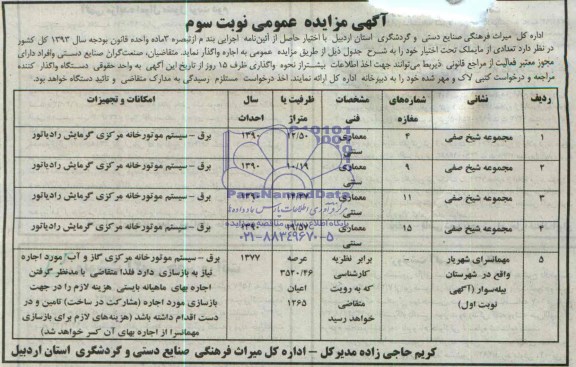 آگهی مزایده عمومی نوبت سوم
اداره کل میراث فرهنگی صنایع دستی و گردشگری استان اردبیل با اختیار حاصل از آئین‌نامه اجرایی بند م ازتبصره ۳ماده واحده قانون بودجه سال ۱۳۹۳ کل کشور
در نظر دارد تعدادی از مایملک تحت اختیار خود را به شرح جدول ذیل از طریق مزایده عمومی به اجاره واگذار نماید. متقاضیان، صنعت‌گران صنایع دستی وافراد دارای
مجوز معتبر فعالیت از مراجع قانونی ذیربط می‌توانند جهت اخذ اطلاعات بیشتراز نحوه واگذاری ظرف ۱۵ روز از تاریخ این آگهی به واحد حقوقی دستگاه واگذار کننده
مراجعه و درخواست کتبی لاک و مهر شده خود را به دبیرخانه اداره کل ارائه نمایند. اخذ درخواست مستلزم رسیدگی به مدارک متقاضی و تائید دستگاه خواهد بود.
ردیف نشانی شماره‌های مغازه مشخصات فنی ظرفیت یا متراژ سال احداث امکانات و تجهیزات
۱ مجموعه شیخ صفی ۴ معماری سنتی ۱۲/۵۰ ۱۳۹۰ برق - سیستم موتورخانه مرکزی گرمایش رادیاتور
۲ مجموعه شیخ صفی ۹ معماری سنتی ۱۰/۱۹ ۱۳۹۰ برق - سیستم موتورخانه مرکزی گرمایش رادیاتور
۳ مجموعه شیخ صفی ۱۱ معماری سنتی ۱۳۹۰ برق - سیستم موتورخانه مرکزی گرمایش رادیاتور
۴ مجموعه شیخ صفی ۱۵ معماری سنتی ۱۹/۵۷ ۱۳۹۰ برق - سیستم موتورخانه مرکزی گرمایش رادیاتور
۵ مهمانسرای شهریار - برابر نظریه عرصه ۱۳۷۷ برق - سیستم موتورخانه مرکزی گاز و آب مورد اجاره
واقع در شهرستان کارشناسی ۳۵۲۰/۴۶ نیاز به بازسازی دارد فلذا متقاضی با مدنظر گرفتن
بیله‌سوار (آگهی که به رویت اعیان اجاره بهای ماهیانه بایستی هزینه لازم را در جهت
نوبت اول) متقاضی ۱۲۶۵ بازسازی مورد اجاره (مشارکت در ساخت) تامین و در
خواهد رسید دست اقدام داشته باشد (هزینه‌های لازم برای بازسازی
مهمانسرا از اجاره بهای آن کسر خواهد شد)
کریم حاجی زاده مدیرکل - اداره کل میراث فرهنگی صنایع دستی و گردشگری استان اردبیل
ParsNamadData
۰۲۱-۸۸۳۴۹۶۷۰-۵